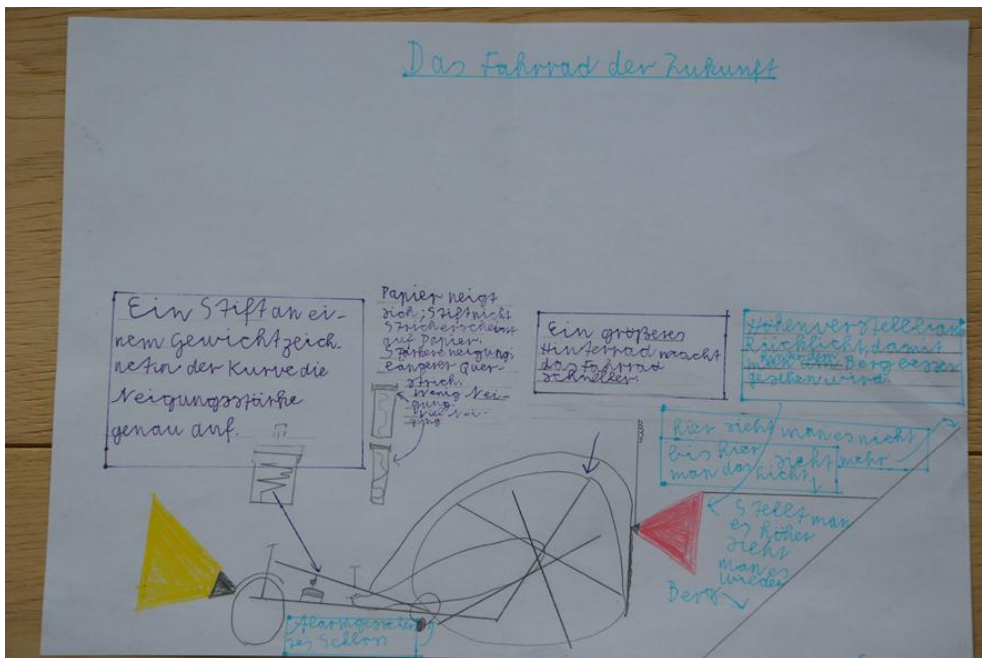 Das Fahrrad der Zukunft
Ein Stift an ei-
nem Gewicht zeich.
net in der Kurve die
Neigungsstärke
genau auf.
Papier neigt
sich; Stift nicht
Stricherscheint
auf Papier.
Stärkere neigung:
längerer quer-
strich.
Wenig Nei-
gung
Viel Nei-
gung
Ein größeres
Hinterrad macht
das Fahrrad
schneller.
Höhenverstellbares
Rücklicht, damit
man am Berg besser
gesehen wird.
hier sieht man es nicht
mehr
bis hier sieht
man das Licht
Stellt man
es höher
sieht
man es
wieder
Berg
Alarmgesicher
tes Schloss